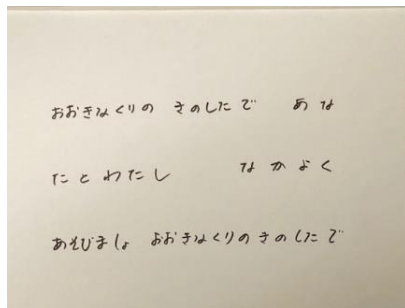 おおきなくりの きのしたで あな
たとわたし なかよく
あそびましょ おおきなくりのきのしたで